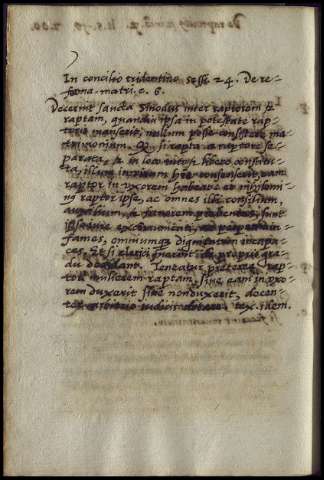 In concilio tridentino sess. 24. De re=
forma. matri. c. 6.
Decernit sancta Sinodus inter raptorem &
raptam, quandiu ipsa in potestate rap=
toris manserit, nullum posse consistere ma
trimonium. Qd. si rapta a raptore se=
parata, & in loco tuto & libero constitu=
ta, illum in virum habere consenserit, eam
raptor in uxorem habeat et nihilomi
nus raptor ipse, ac omnes illi consilium,
auxilium, & favorem prebentes, sint
ipso iure excommunicati, ac perpetuo in=
fames, omniumq dignitatum incapa=
ces. Et si clerici fuerint de proprio gra=
du decidant. Teneatur preterea rap=
tor mulierem raptam, sive eam in uxo
rem duxerit sive non duxerit, decen=
ter arbitrio iudicis dotare. tex. idem.